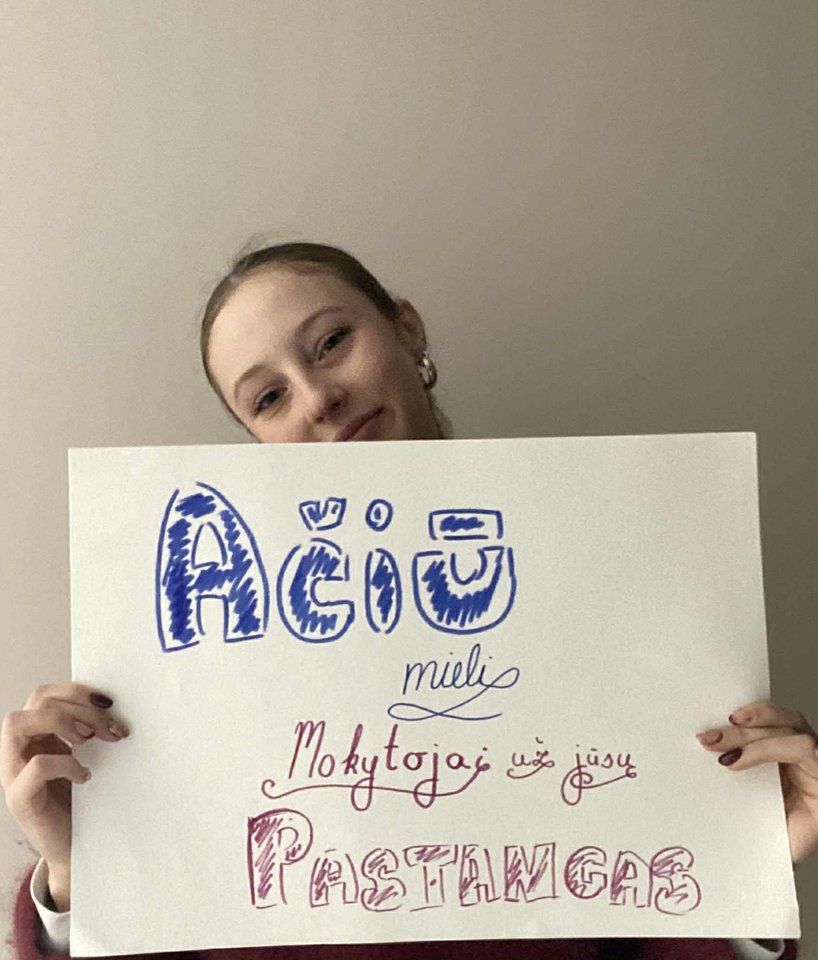 Ačiū
mieli
Mokytojai už jūsų
PASTANGAS